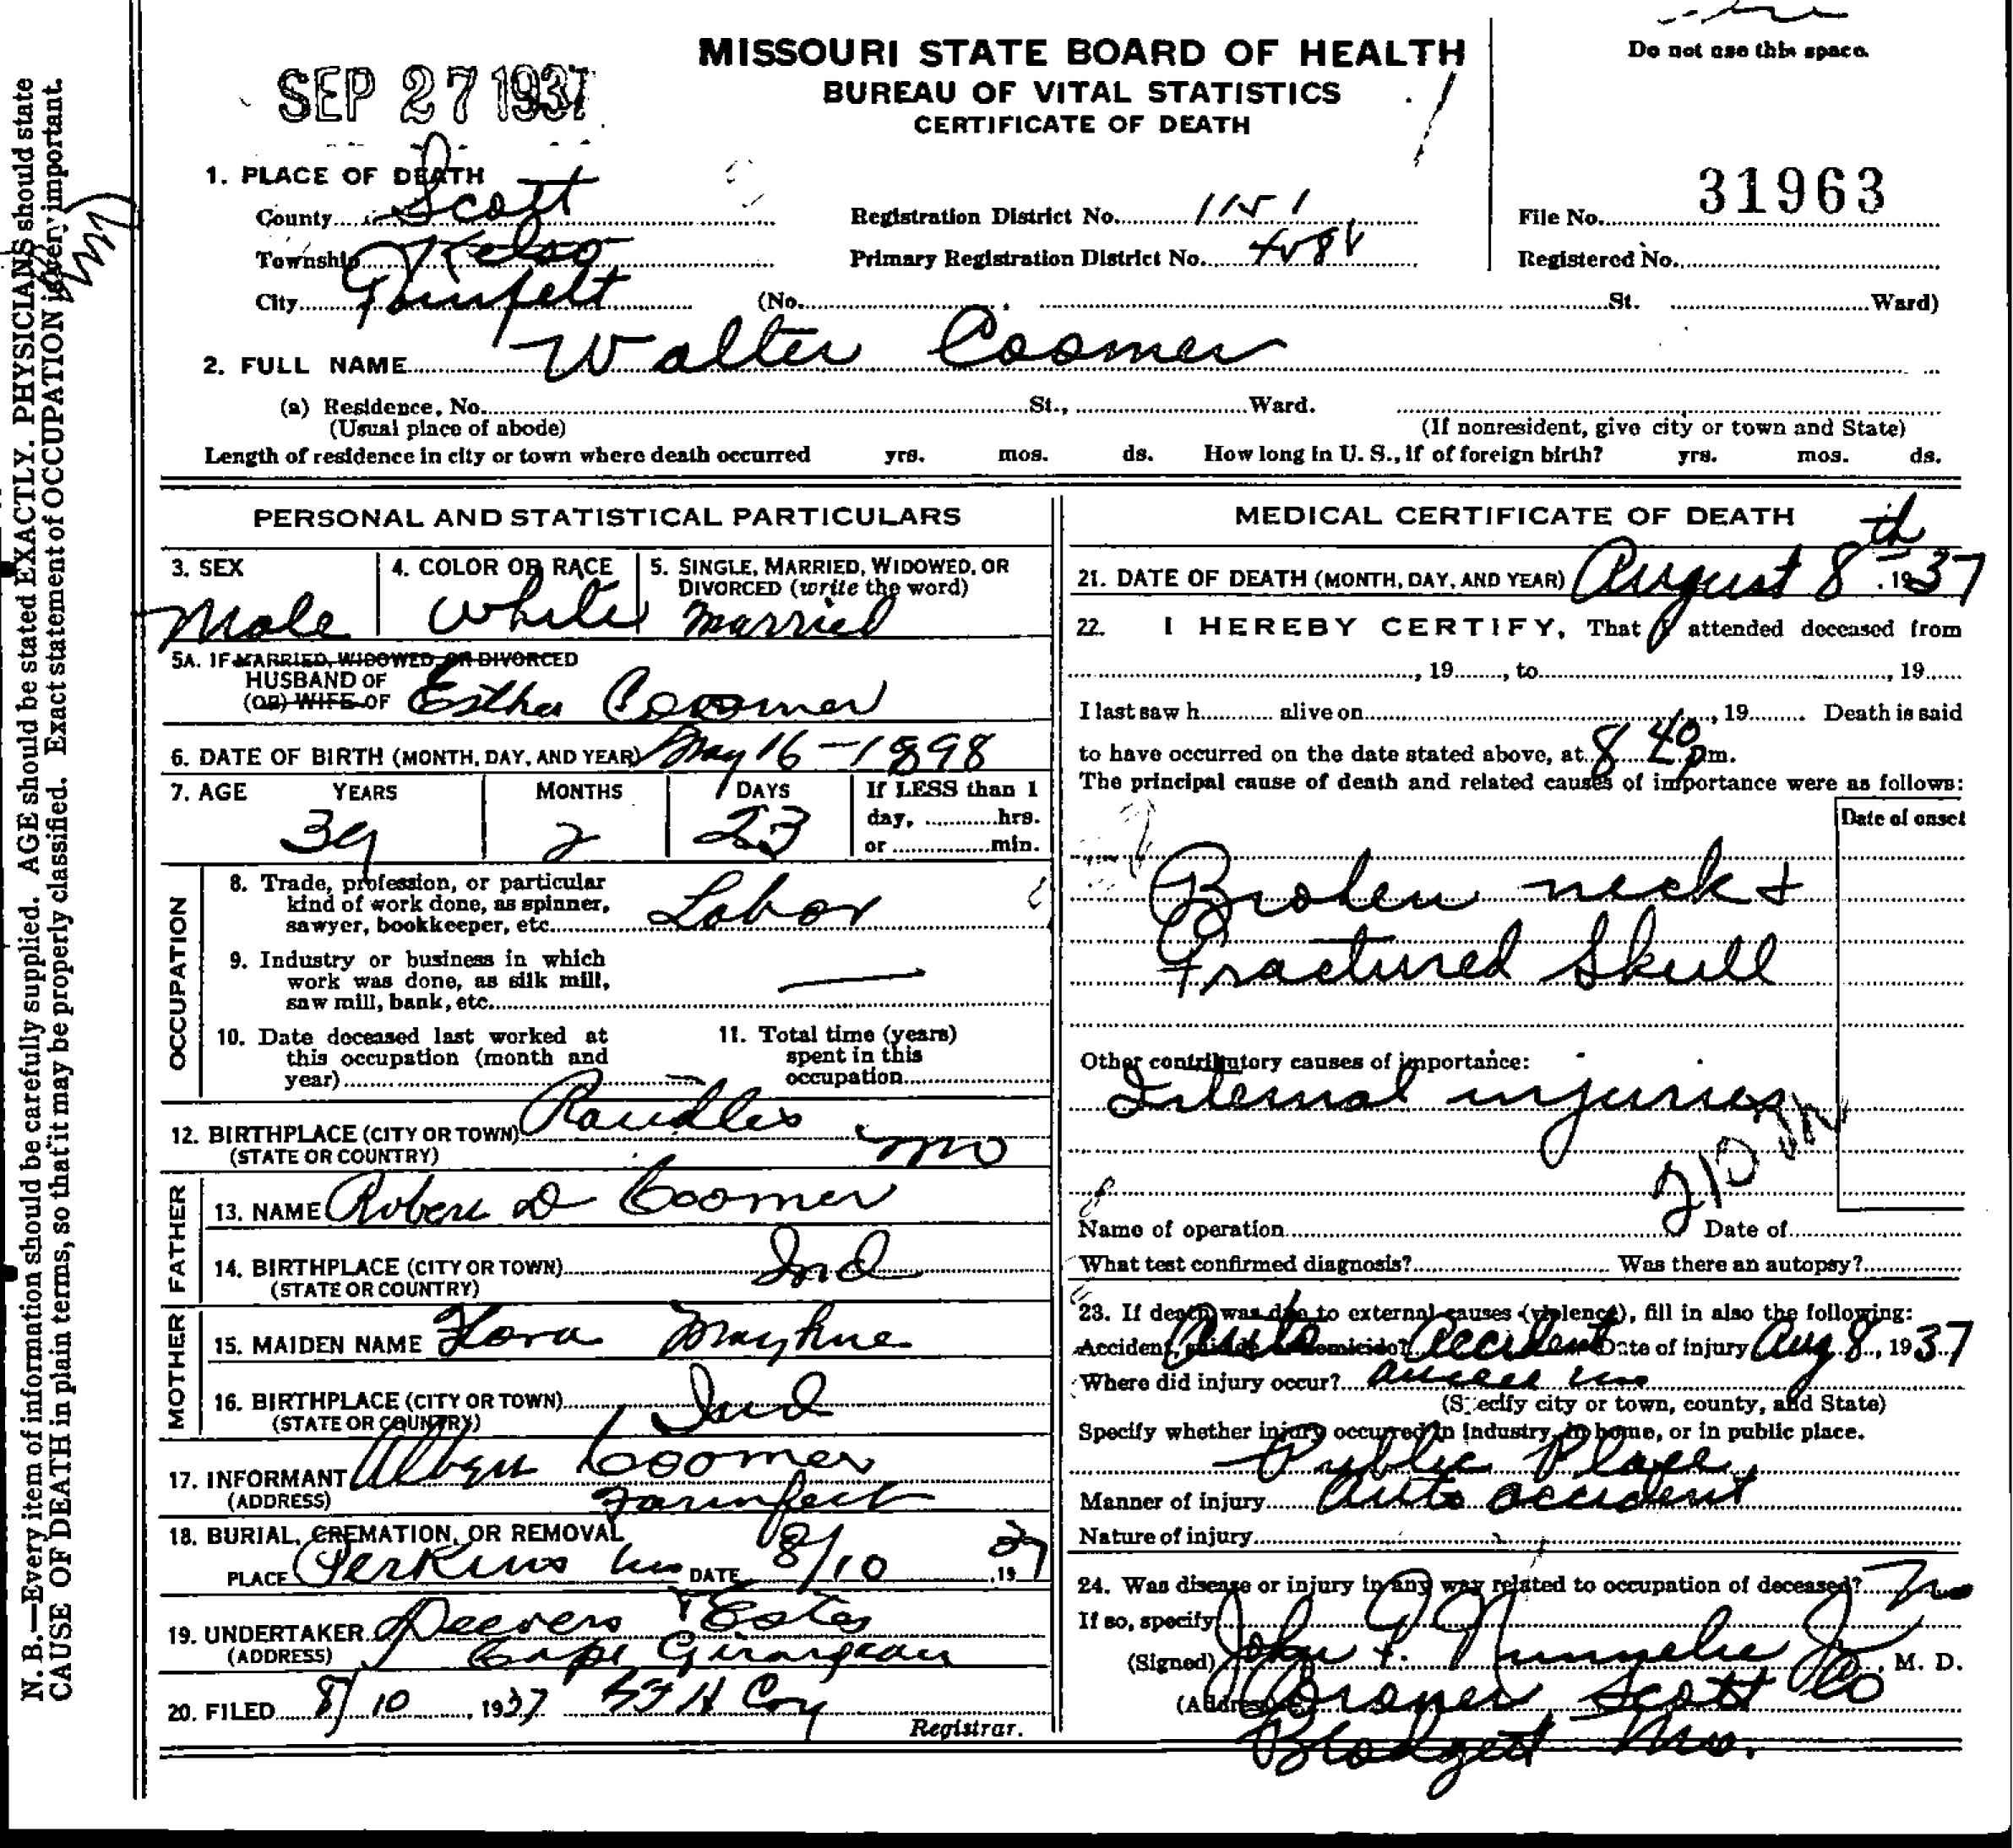 SEP 27 1937
MISSOURI STATE BOARD OF HEALTH
BUREAU OF VITAL STATISTICS
CERTIFICATE OF DEATH
Do not use this space.
1. PLACE OF DEATH
County Scott
Registration District No. 1151
File No. 31963
Township Kelso
Primary Registration District No.
Registered No.
City (No. St. Ward)
2. FULL NAME Walter Coomer
(a) Residence, No. St., Ward.
(Usual place of abode) (If nonresident, give city or town and State)
Length of residence in city or town where death occurred yrs. mos. ds. How long in U. S., if of foreign birth? yrs. mos. ds.
PERSONAL AND STATISTICAL PARTICULARS
3. SEX 4. COLOR OR RACE 5. SINGLE, MARRIED, WIDOWED, OR
DIVORCED (write the word)
Male White Married
5A. IF MARRIED, WIDOWED, OR DIVORCED
HUSBAND OF
(OR) WIFE OF Esther Coomer
6. DATE OF BIRTH (MONTH, DAY, AND YEAR) May 16 - 1898
7. AGE YEARS MONTHS DAYS If LESS than 1
day, hrs.
or min.
39 2 23
OCCUPATION
8. Trade, profession, or particular
kind of work done, as spinner,
sawyer, bookkeeper, etc. Labor
9. Industry or business in which
work was done, as silk mill,
saw mill, bank, etc. —
10. Date deceased last worked at
this occupation (month and
year)
11. Total time (years)
spent in this
occupation
12. BIRTHPLACE (CITY OR TOWN) Randles
(STATE OR COUNTRY) Mo
FATHER
13. NAME Robert D Coomer
14. BIRTHPLACE (CITY OR TOWN) Ind
(STATE OR COUNTRY)
MOTHER
15. MAIDEN NAME Flora Mayhue
16. BIRTHPLACE (CITY OR TOWN) Ind
(STATE OR COUNTRY)
17. INFORMANT Albert Coomer
(ADDRESS)
18. BURIAL, CREMATION, OR REMOVAL
PLACE Perkins Mo DATE 8/10, 1937
19. UNDERTAKER Estes
(ADDRESS) Cape Girardeau
20. FILED 8/10, 1937
Registrar.
MEDICAL CERTIFICATE OF DEATH
21. DATE OF DEATH (MONTH, DAY, AND YEAR) August 8th, 1937
22. I HEREBY CERTIFY, That I attended deceased from
, 19 , to , 19
I last saw h alive on , 19 . Death is said
to have occurred on the date stated above, at 8 40 pm.
The principal cause of death and related causes of importance were as follows:
Date of onset
Broken neck +
Fractured Skull
Other contributory causes of importance:
Internal injuries
Name of operation Date of
What test confirmed diagnosis? Was there an autopsy?
23. If death was due to external causes (violence), fill in also the following:
Accident, suicide or homicide? Auto Accident Date of injury Aug 8, 1937
Where did injury occur?
(Specify city or town, county, and State)
Specify whether injury occurred in industry, in home, or in public place.
Public Place
Manner of injury Auto accident
Nature of injury
24. Was disease or injury in any way related to occupation of deceased? No
If so, specify
(Signed) John F. Nunnelee Jr, M. D.
(Address) Coroner Scott Co
Blodgett Mo.
N. B.—Every item of information should be carefully supplied. AGE should be stated EXACTLY. PHYSICIANS should state
CAUSE OF DEATH in plain terms, so that it may be properly classified. Exact statement of OCCUPATION is very important.